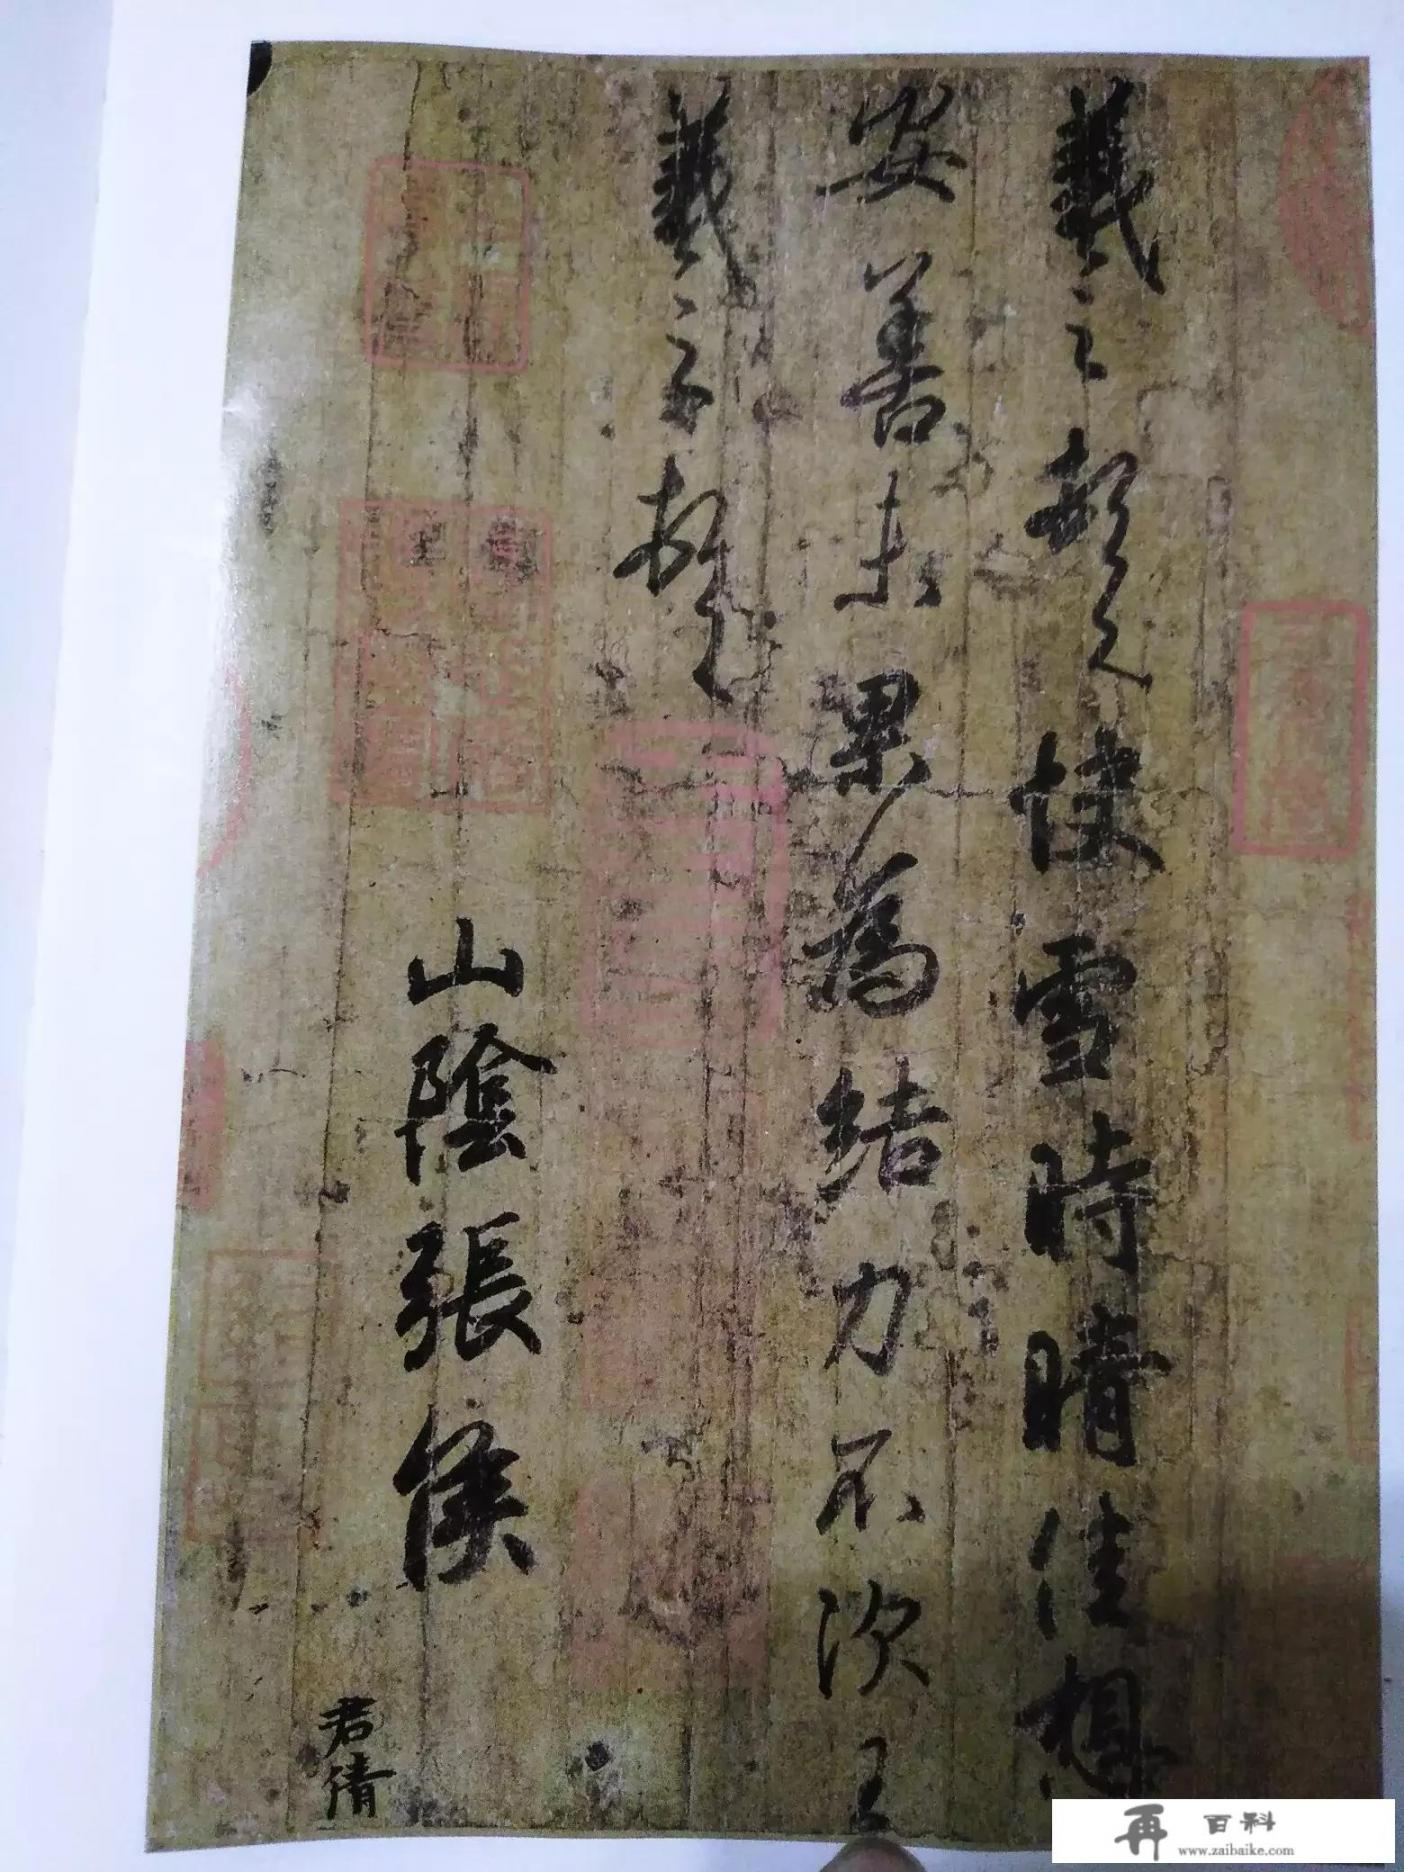 羲之頓首快雪時晴佳想
安善未果為結力不次王
羲之頓首
山陰張侯
君倩
再 百科
www.zaibaike.com